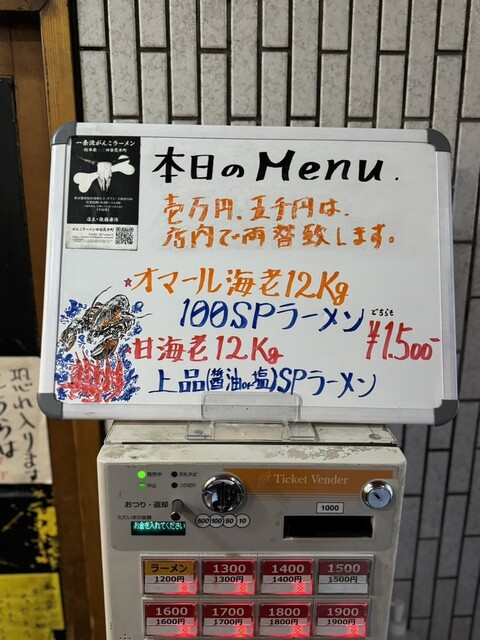 一条流がんこラーメン
総本家 四谷荒木町
店主・後藤俊佑
がんこラーメン四谷荒木町
本日のMenu.
壱万円、五千円は、
店内で両替致します。
☆オマール海老12Kg
100SPラーメン
どちらも
¥1.500-
☆甘海老12Kg
上品(醤油or塩)SPラーメン
恐れ入ります
こちらは
Ticket Vender
発売中
中止
つり切れ
おつり・返却
500 100 50 10
1000
お金を入れてください
ラーメン
1200円
1300
1300円
1400
1400円
1500
1500円
1600
1600円
1700
1700円
1800
1800円
1900
1900円